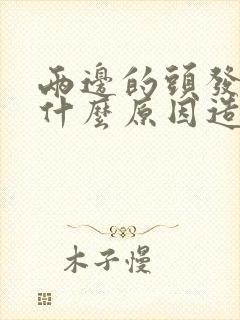 兩邊的頭發
什麼原因造
木子慢